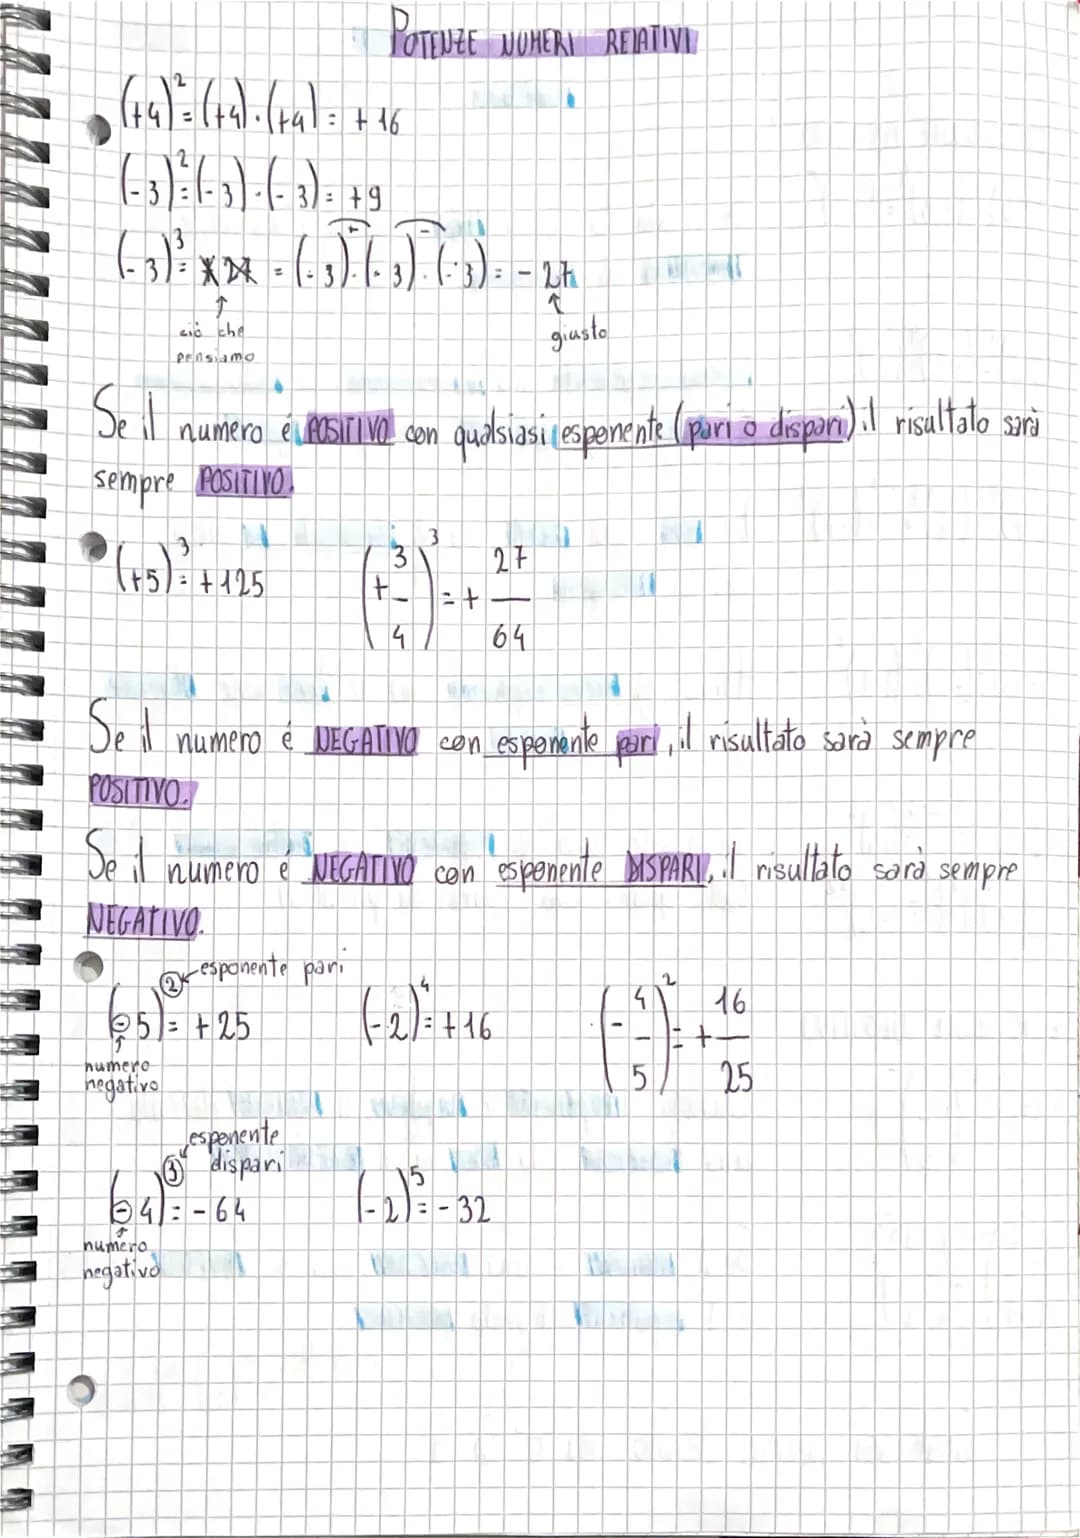 POTENZE NUMERI RELATIVI
(+4)² = (+4)·(+4) = +16
(-3)² = (-3)·(-3) = +9
(-3)³ = = (-3)·(-3)·(-3) = -27
+ -
↑ ↑
ciò che giusto
pensiamo
Se il numero é POSITIVO con qualsiasi esponente (pari o dispari) il risultato sarà
sempre POSITIVO.
(+5)³ = +125 (+3/4)³ = +27/64
Se il numero é NEGATIVO con esponente pari, il risultato sarà sempre
POSITIVO.
Se il numero é NEGATIVO con esponente DISPARI, il risultato sarà sempre
NEGATIVO.
← esponente pari
(-5)² = +25 (-2)⁴ = +16 (-4/5)² = +16/25
↑
numero
negativo
esponente
dispari
(-4)³ = -64 (-2)⁵ = -32
↑
numero
negativo